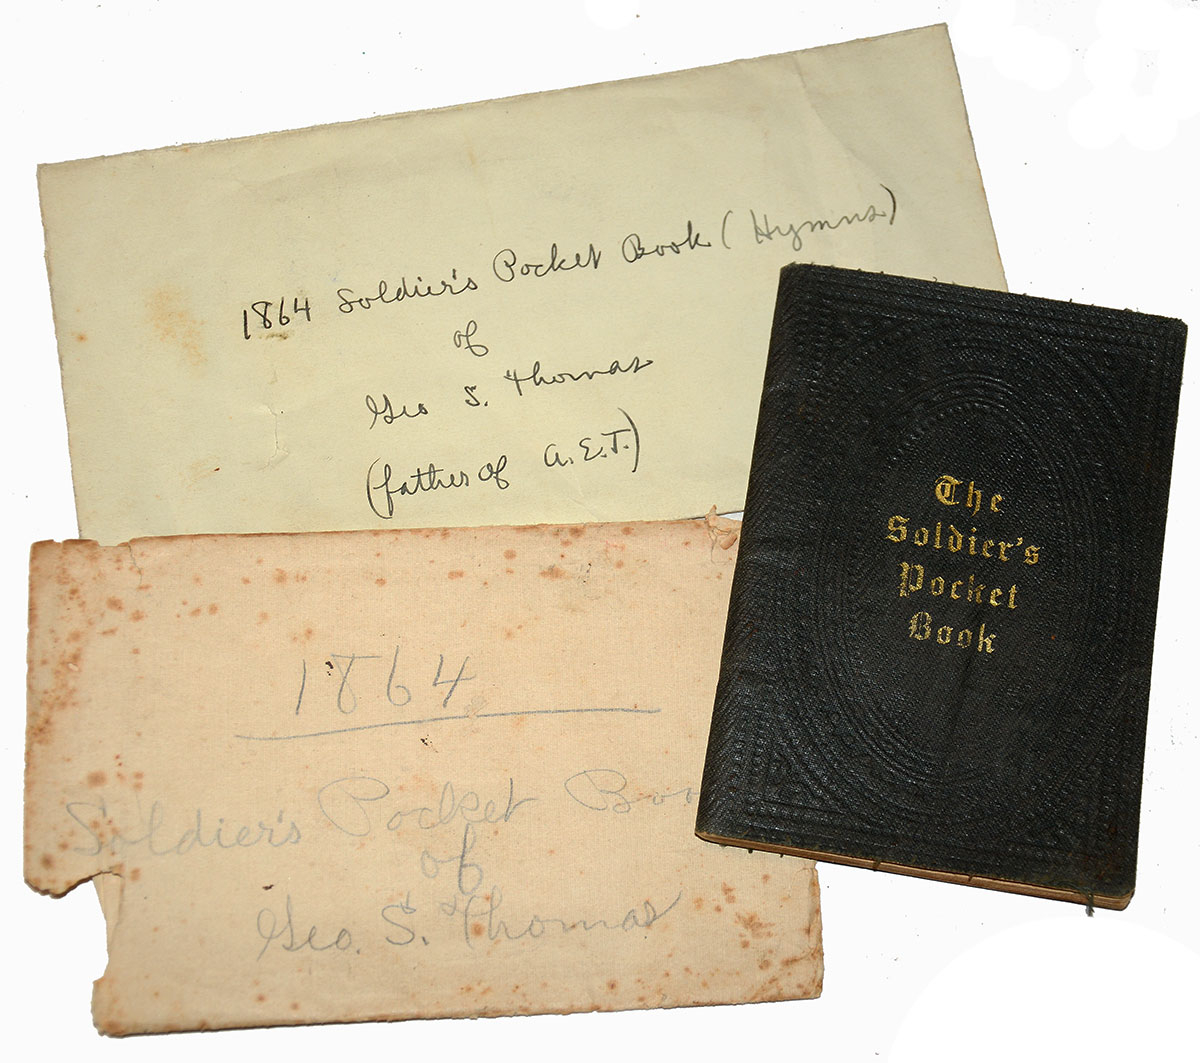 1864 Soldier's Pocket Book (Hymns)
of
Geo S. Thomas
(father of A.E.T.)
The
Soldier's
Pocket
Book
1864
Soldier's Pocket Boo
of
Geo. S. Thomas